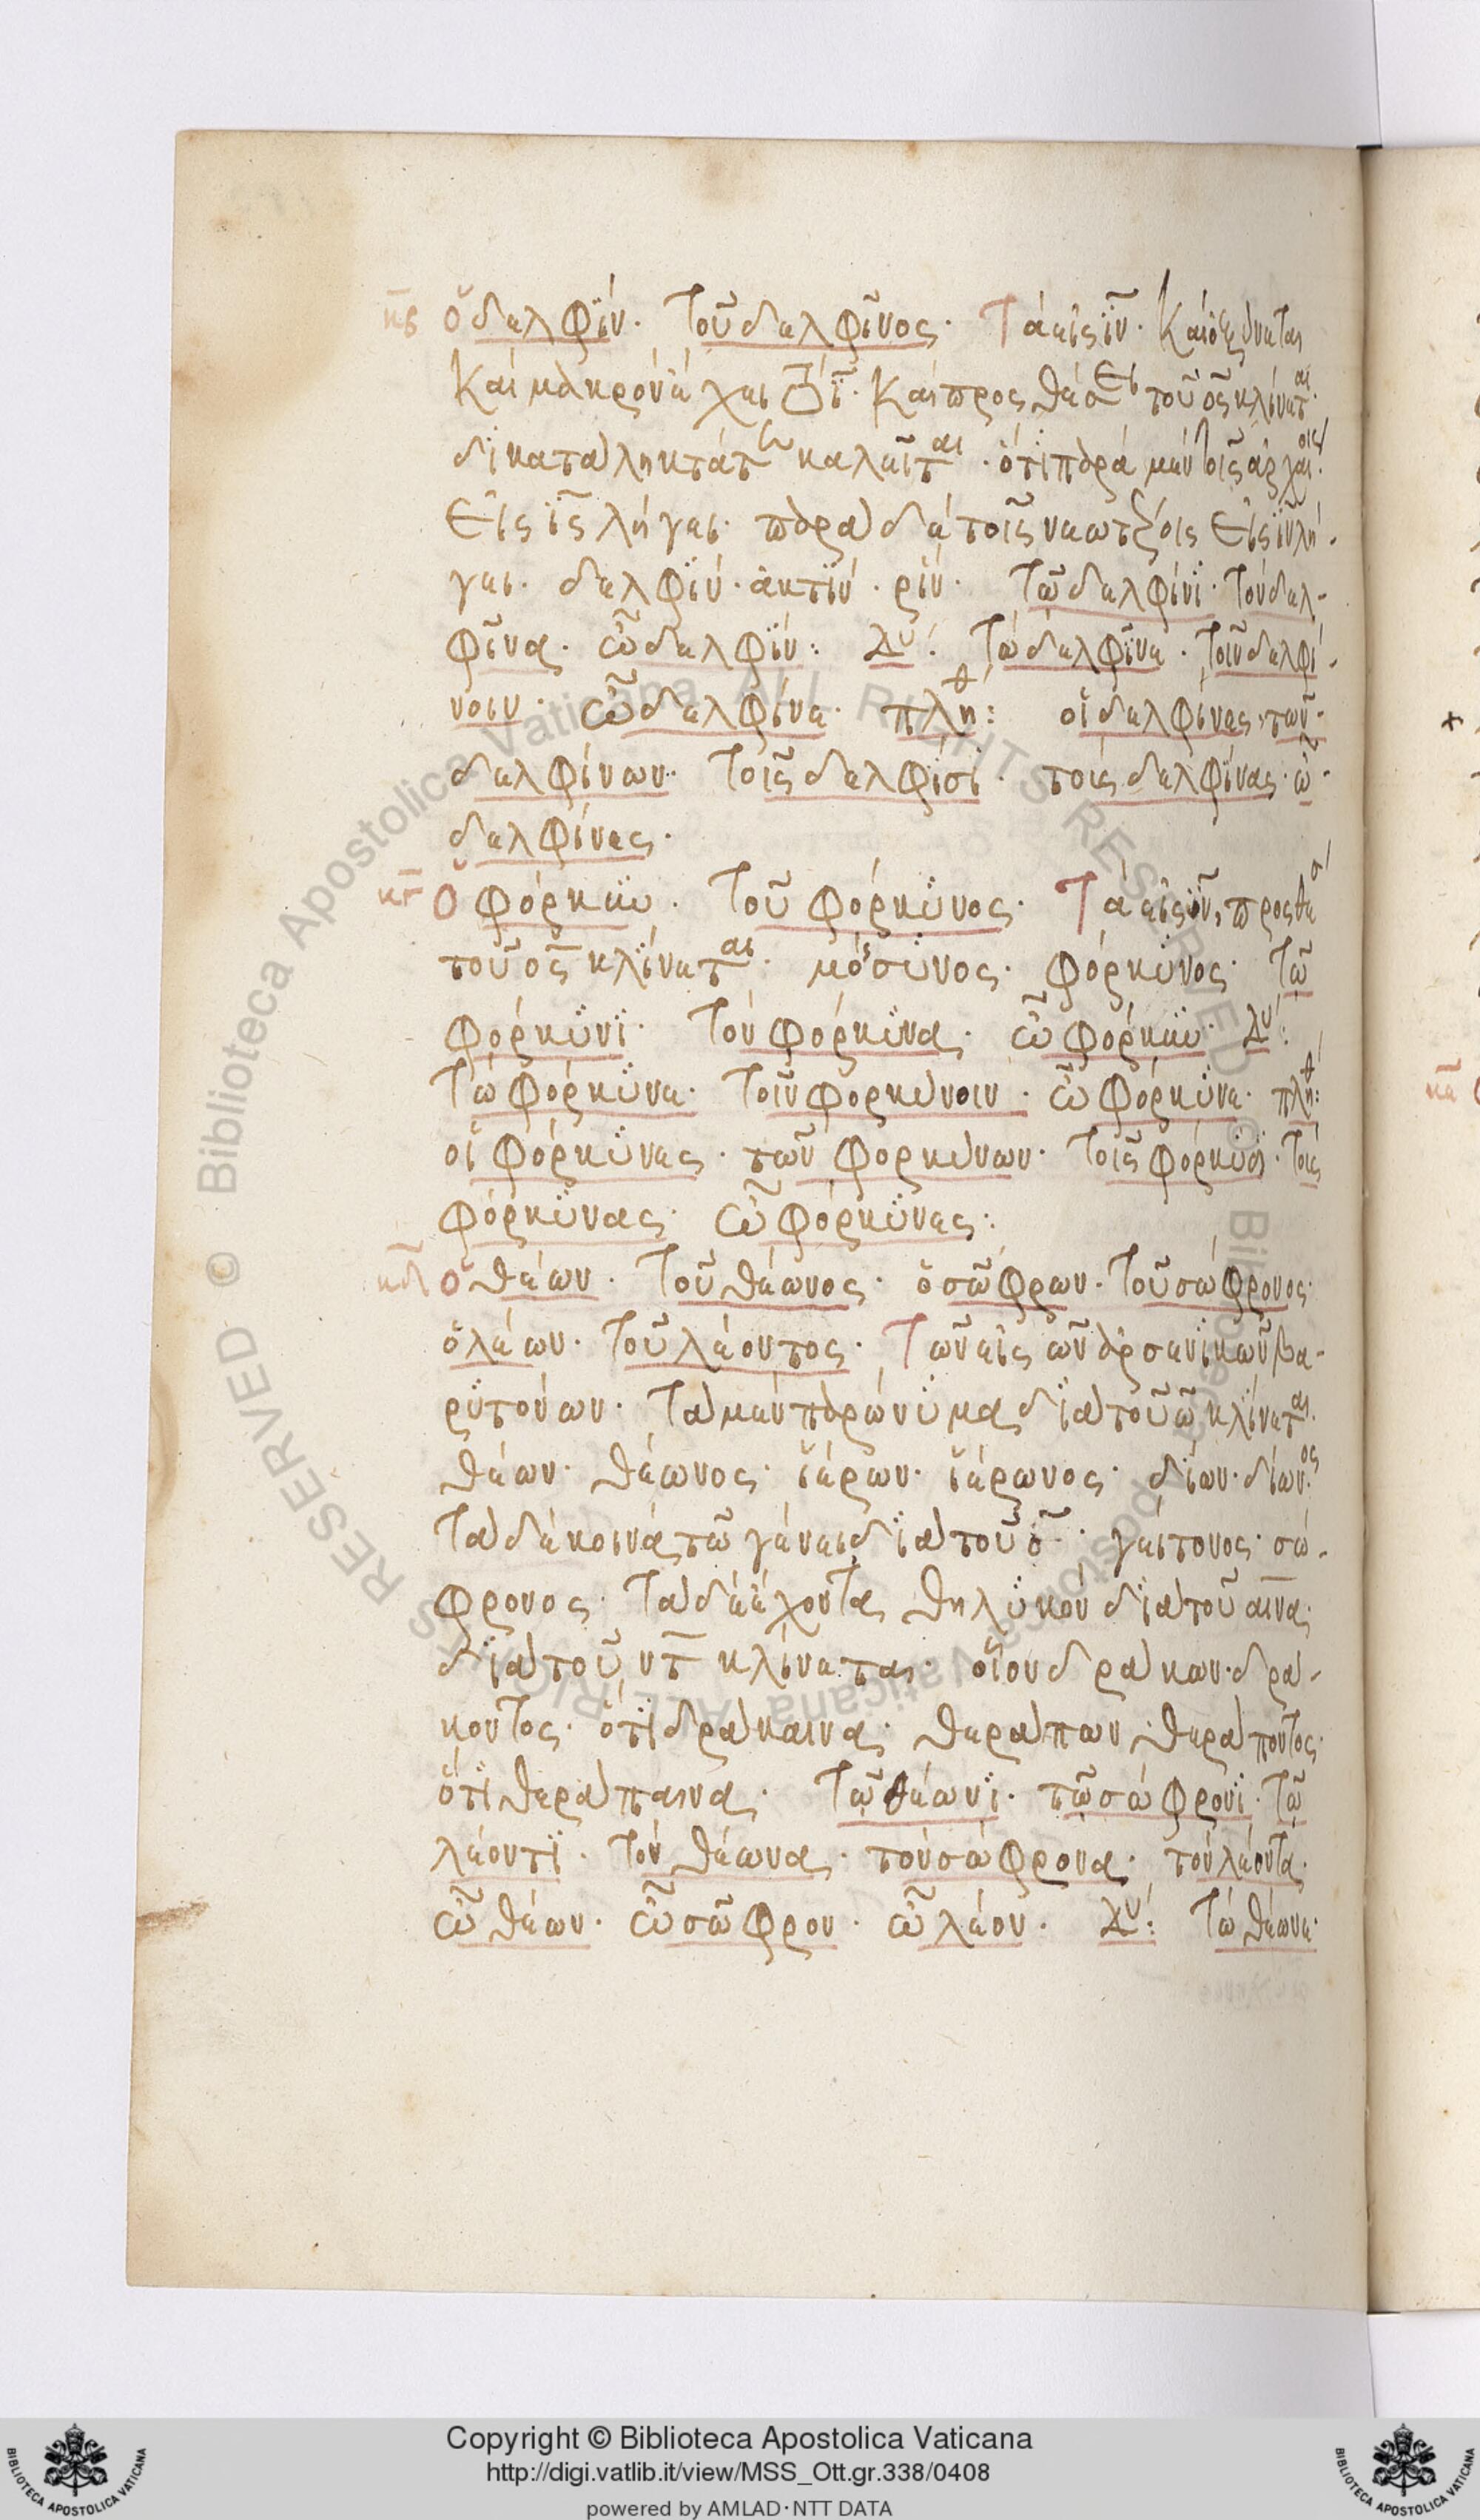 κβ ὁ δελφίν· τοῦ δελφῖνος· Τὰ εἰς ἲν· καὶ ὀξύνεται
καὶ μακρὸν ἔχει τὸ ῖ· καὶ προσθέσει τοῦ ος κλίνεται·
δικατάληκτα καλεῖται· ὅτι παρὰ μὲν τοῖς ἀρχαίοις
εἰς ῒς λήγει· παρὰ δὲ τοῖς νεωτέροις εἰς ἲν λή-
γει· δελφίν· ἀκτίν· ῥίν· τῷ δελφίνι· τὸν δελ-
φῖνα· ὦ δελφίν: δυ: τὼ δελφῖνε· τοῖν δελφί-
νοιν· ὦ δελφίνε· πλη: οἱ δελφίνες, τῶν
δελφίνων· τοῖς δελφίσι· τοὺς δελφίνας· ὦ
δελφίνες·
κγ ὁ φόρκυν· τοῦ φόρκυνος· Τὰ εἰς ὺν, προσθέσει
τοῦ ος κλίνεται· μόσυνος· φόρκυνος· τῷ
φόρκυνι· τὸν φόρκυνα· ὦ φόρκυν· δυ:
τὼ φόρκυνε· τοῖν φορκύνοιν· ὦ φόρκυνε· πλη:
οἱ φόρκυνες· τῶν φορκύνων· τοῖς φόρκυσι· τοὺς
φόρκυνας· ὦ φόρκυνες:
κδ ὁ θέων· τοῦ θέωνος· ὁ σώφρων· τοῦ σώφρονος·
ὁ λέων· τοῦ λέοντος· Τῶν εἰς ων ἀρσενικῶν βα-
ρυτόνων· τὰ μὲν παρώνυμα διὰ τοῦ ω κλίνεται·
θέων· θέωνος· ἱέρων· ἱέρωνος· δίων· δίωνος
τὰ δὲ κοινὰ τῷ γένει διὰ τοῦ ο· γείτονος· σώ-
φρονος· τὰ δὲ ἔχοντα θηλυκὸν διὰ τοῦ αινα·
διὰ τοῦ ντ κλίνεται· οἷον δράκων· δρά-
κοντος· ὅτι δράκαινα· θεράπων θεράποντος·
ὅτι θεράπαινα· τῷ θέωνι· τῷ σώφρονι· τῷ
λέοντι· τὸν θέωνα· τὸν σώφρονα· τὸν λέοντα·
ὦ θέων· ὦ σῶφρον· ὦ λέον· δυ: τὼ θέωνε·
Copyright © Biblioteca Apostolica Vaticana
http://digi.vatlib.it/view/MSS_Ott.gr.338/0408
powered by AMLAD·NTT DATA